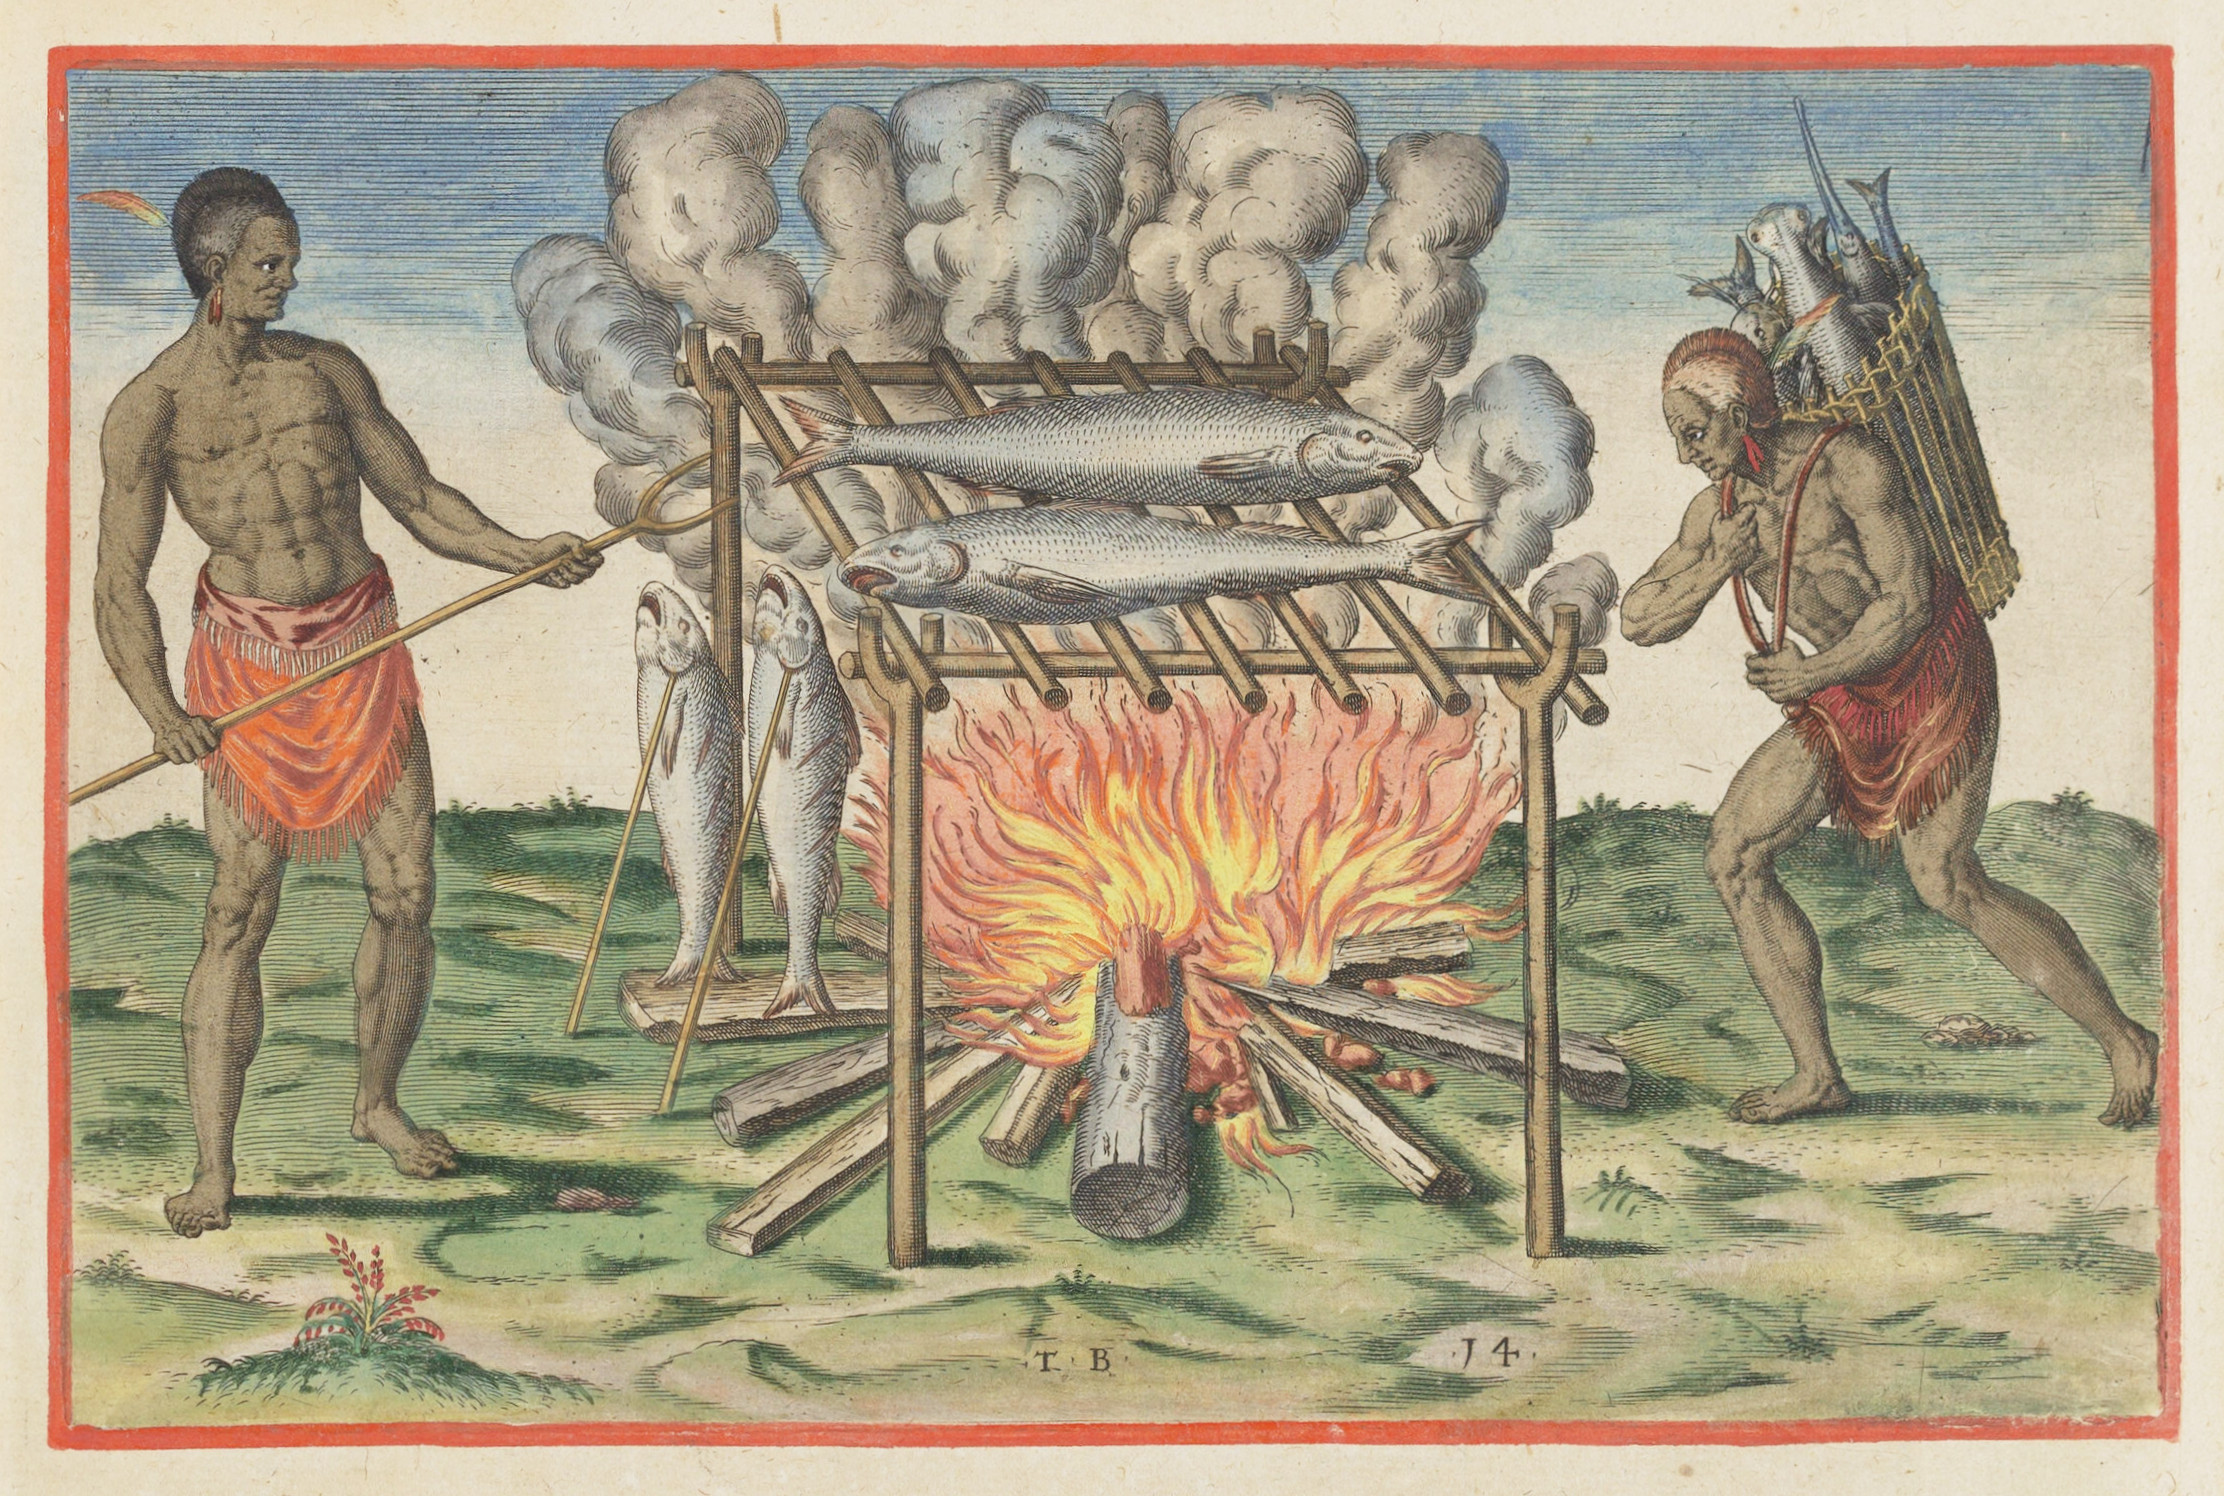 T B
14